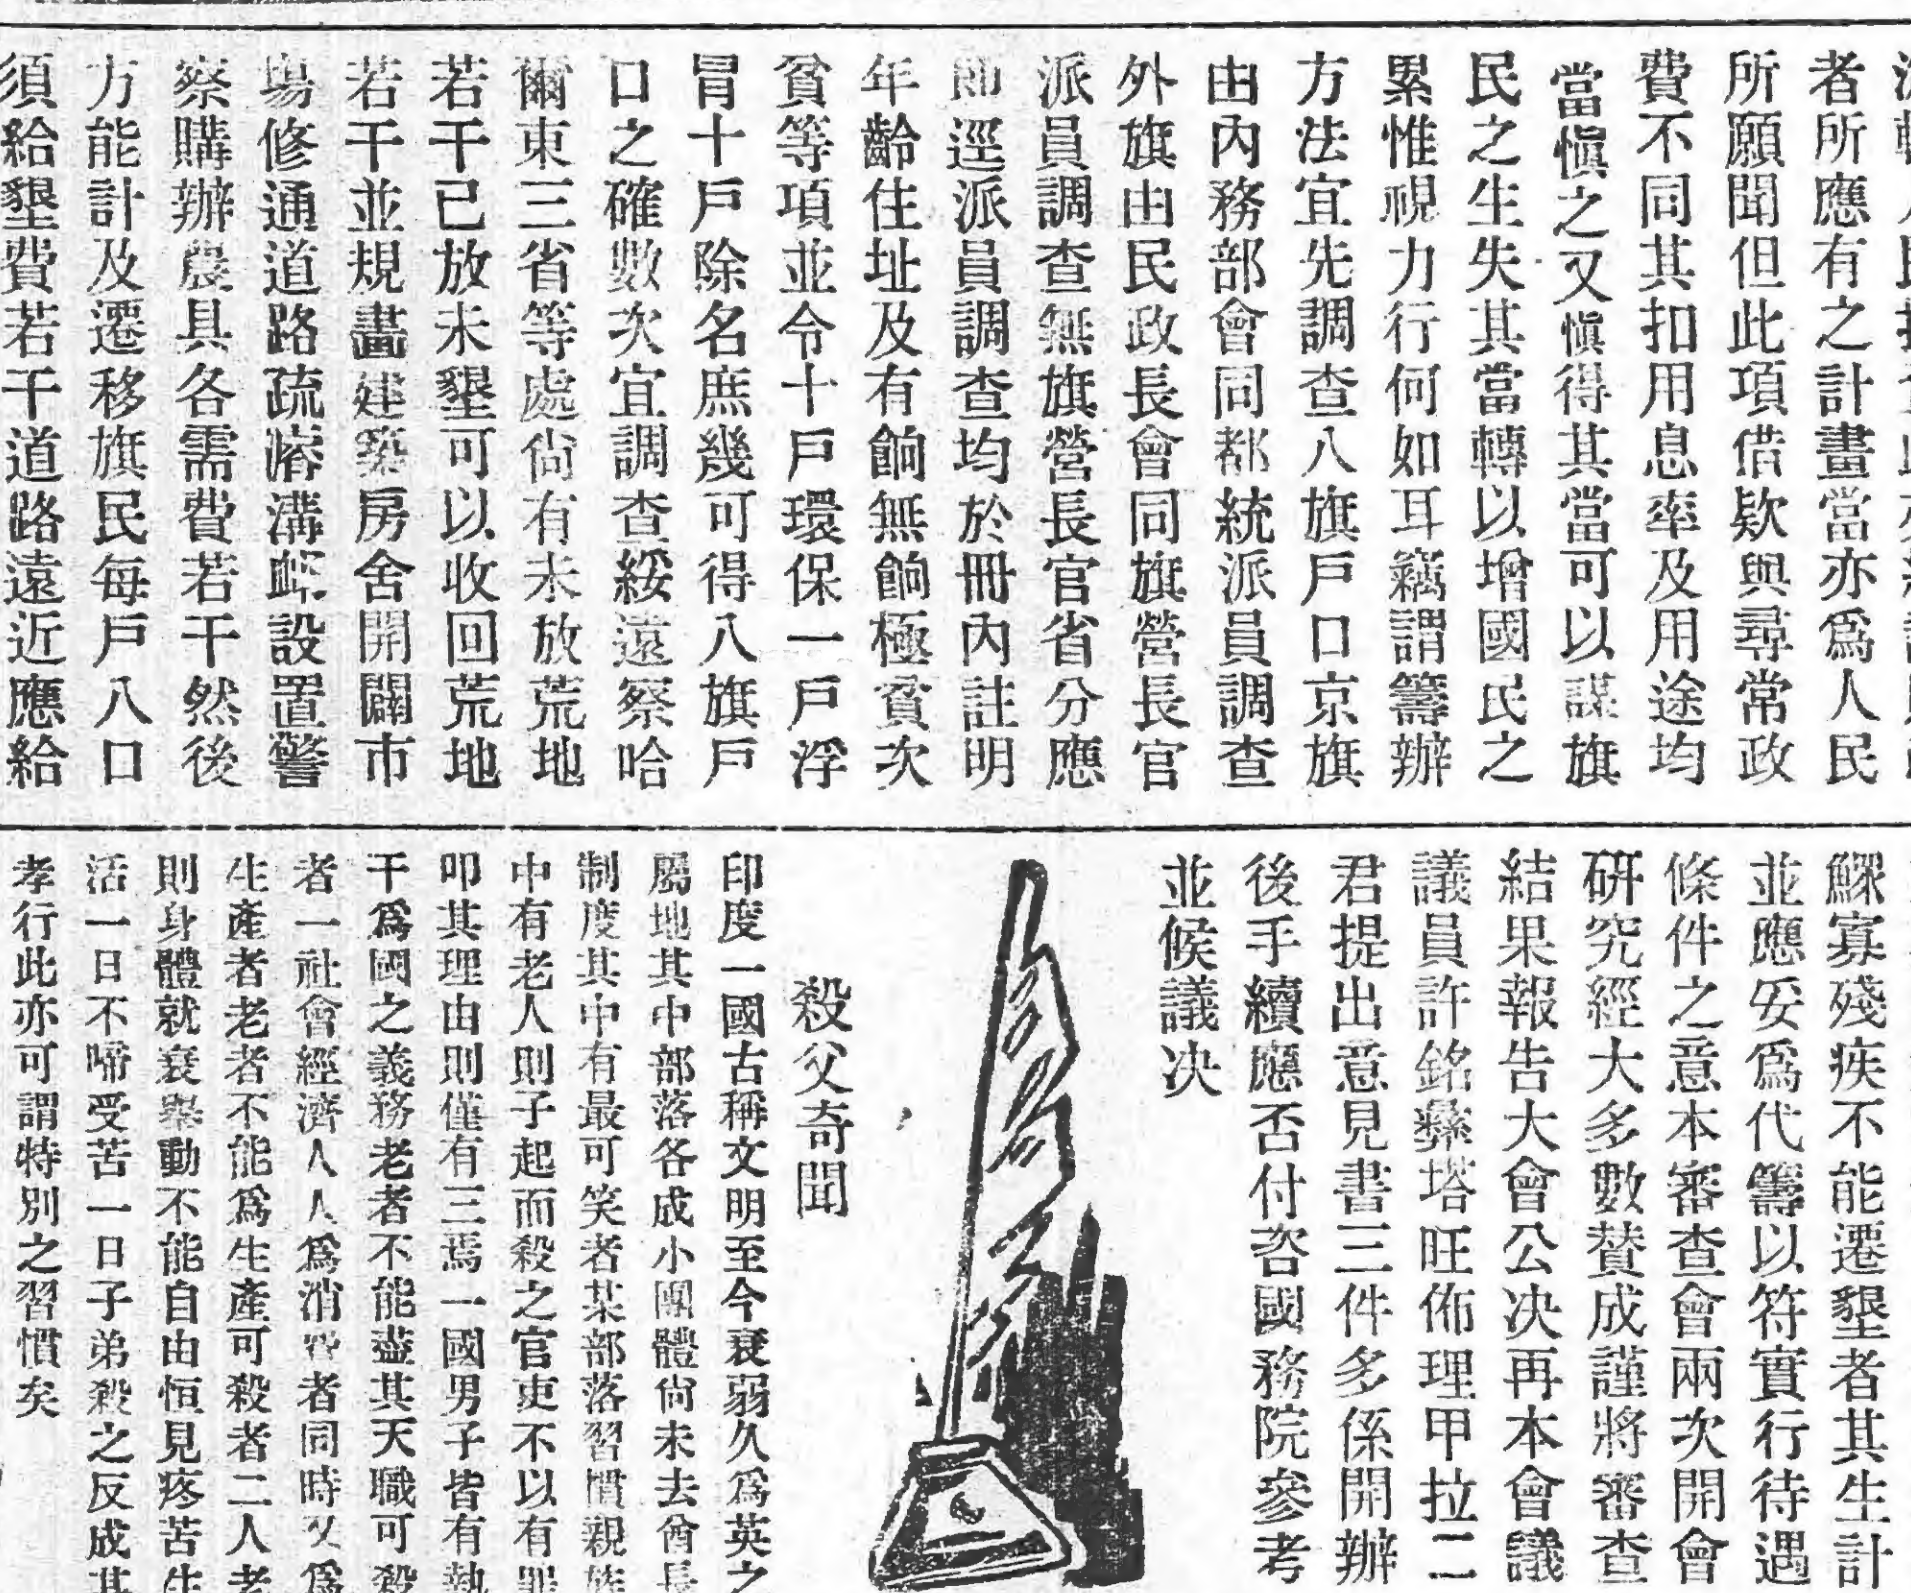 者所應有之計畫當亦爲人民
所願聞但此項借欵與尋常政
費不同其扣用息率及用途均
當愼之又愼得其當可以謀旗
民之生失其當轉以增國民之
累惟視力行何如耳竊謂籌辦
方法宜先調查八旗戶口京旗
由內務部會同都統派員調查
外旗由民政長會同旗營長官
派員調查無旗營長官省分應
卽逕派員調查均於冊內註明
年齡住址及有餉無餉極貧次
貧等項並令十戶環保一戶浮
冒十戶除名庶幾可得八旗戶
口之確數次宜調查綏遠察哈
爾東三省等處尙有未放荒地
若干已放未墾可以收回荒地
若干並規畫建築房舍開闢市
場修通道路疏濬溝設置警
察購辦農具各需費若干然後
方能計及遷移旗民每戶八口
須給墾費若干道路遠近應給
鰥寡殘疾不能遷墾者其生計
並應妥爲代籌以符實行待遇
條件之意本審查會兩次開會
研究經大多數贊成謹將審查
結果報告大會公决再本會議
議員許銘彝塔旺佈理甲拉二
君提出意見書三件多係開辦
後手續應否付咨國務院參考
並候議决
殺父奇聞
印度一國古稱文明至今衰弱久爲英之
屬地其中部落各成小團體尙未去酋長
制度其中有最可笑者某部落習慣親族
中有老人則子起而殺之官吏不以有罪
叩其理由則僅有三焉一國男子皆有執
干爲國之義務老者不能盡其天職可殺
者一社會經濟人人爲消費者同時又爲
生產者老者不能爲生產可殺者二人老
則身體就衰舉動不能自由恒見疼苦生
活一日不啻受苦一日子弟殺之反成其
孝行此亦可謂特別之習慣矣